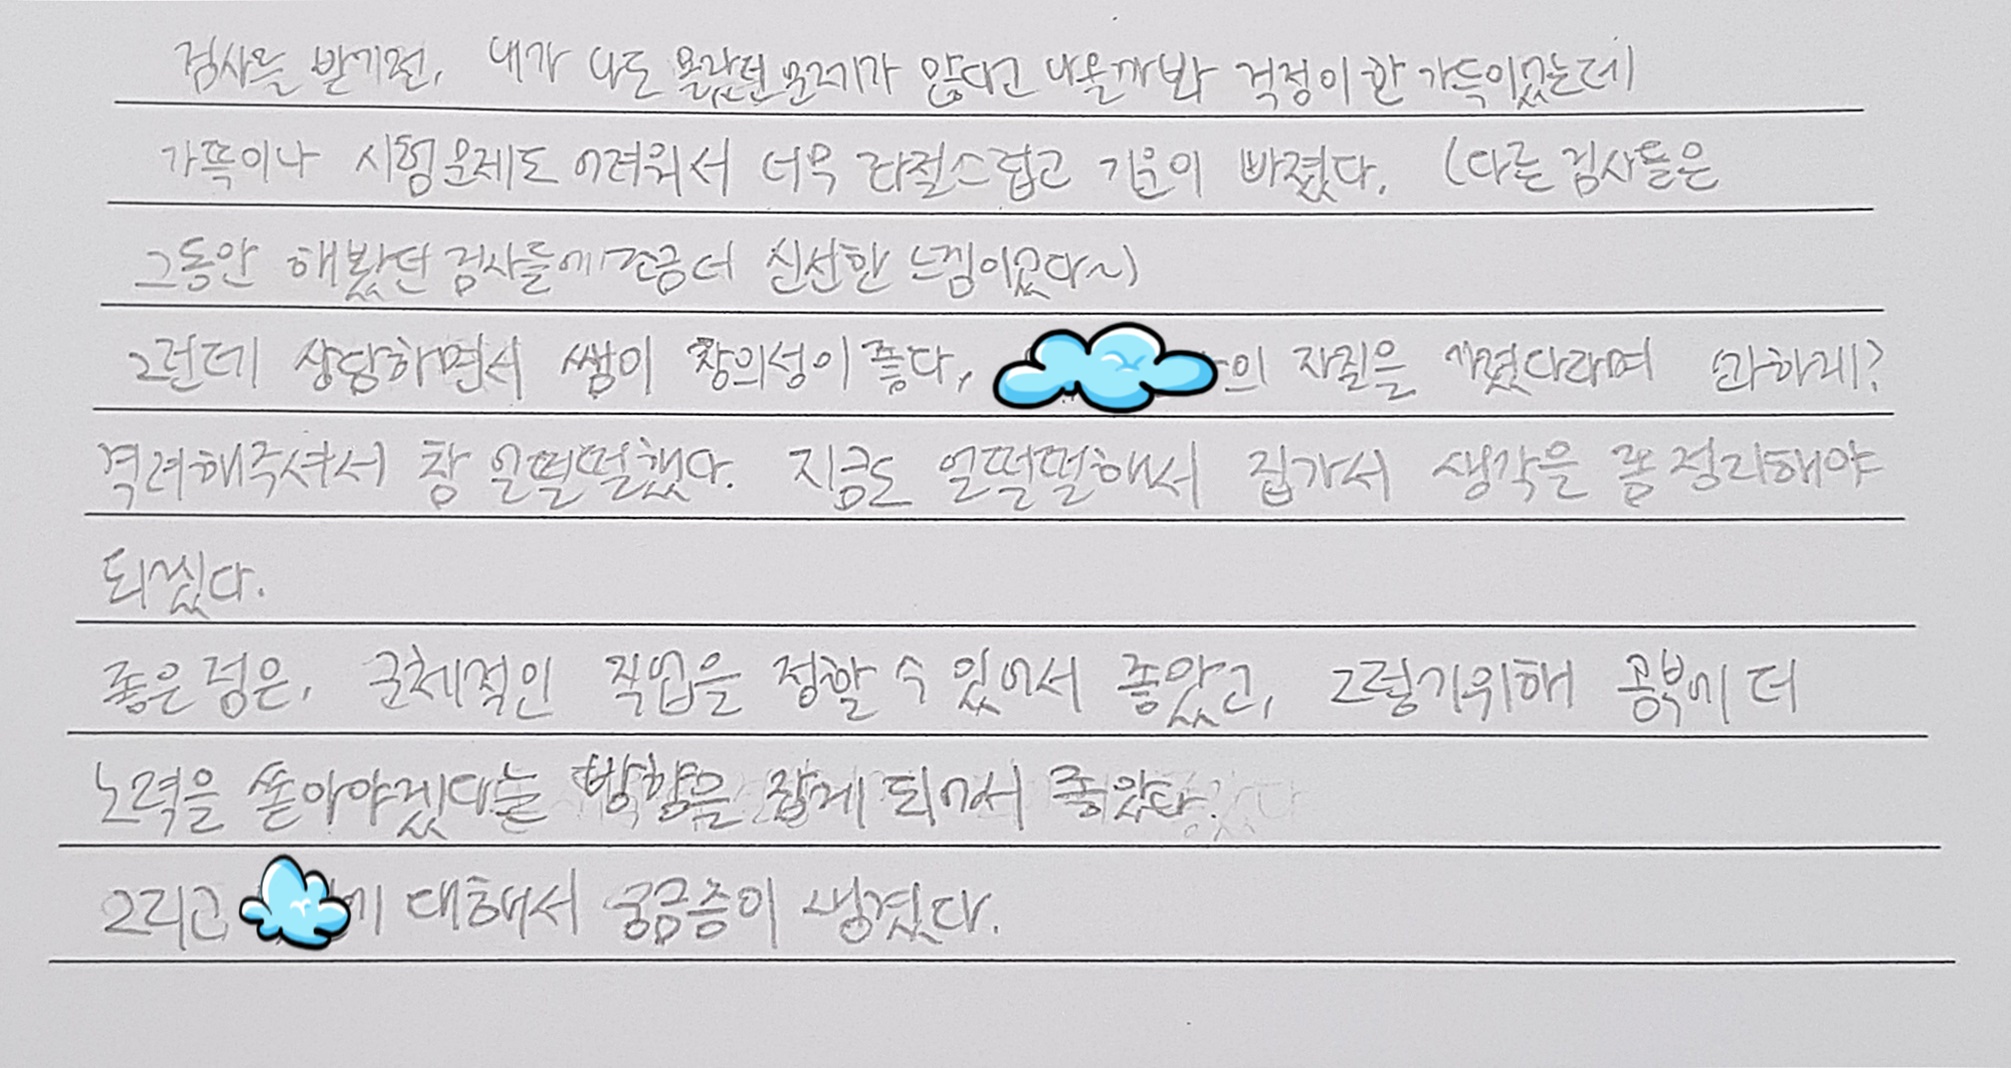 검사를 받기전, 내가 나도 몰랐던 문제가 많다고 나올까봐 걱정이 한 가득이었는데
가뜩이나 시험문제도 어려워서 너무 좌절스럽고 기운이 빠졌다. (다른 검사들은
그동안 해봤던 검사들에 조금더 신선한 느낌이였다~)
그런데 상담하면서 쌤이 창의성이 좋다, 의 자질을 가졌다라며 과하게?
격려해주셔서 참 얼떨떨했다. 지금도 얼떨떨해서 집가서 생각을 좀 정리해야
되겠다.
좋은 점은, 구체적인 직업을 정할 수 있어서 좋았고, 그렇기위해 공부에 더
노력을 쏟아야겠다는 방향을 잡게 되어서 좋았다.
그리고 에 대해서 궁금증이 생겼다.